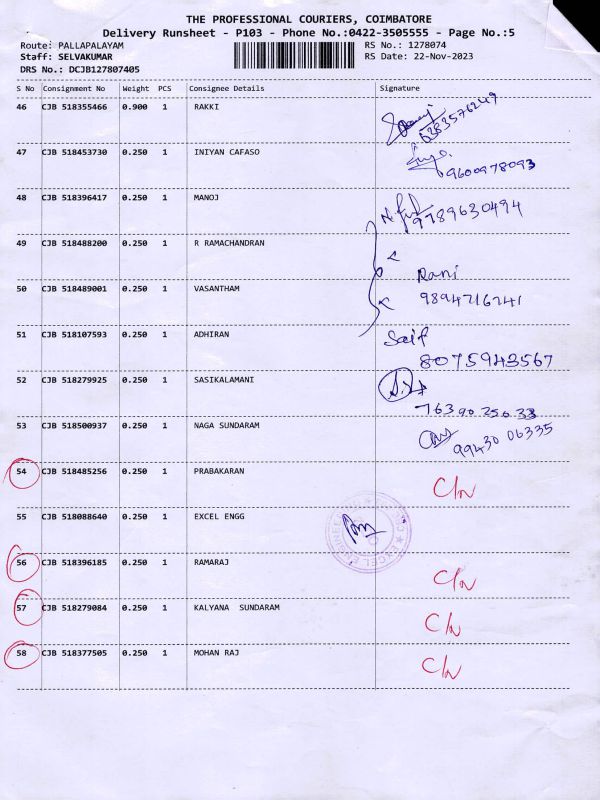 THE PROFESSIONAL COURIERS, COIMBATORE
Delivery Runsheet - P103 - Phone No.:0422-3505555 - Page No.:5
Route: PALLAPALAYAM RS No.: 1278074
Staff: SELVAKUMAR RS Date: 22-Nov-2023
DRS No.: DCJB127807405
S No Consignment No Weight PCS Consignee Details Signature
46 CJB 518355466 0.900 1 RAKKI
6383576249
47 CJB 518453730 0.250 1 INIYAN CAFASO
9600978093
48 CJB 518396417 0.250 1 MANOJ
9789630494
49 CJB 518488200 0.250 1 R RAMACHANDRAN
Rani
50 CJB 518489001 0.250 1 VASANTHAM
9894716741
51 CJB 518107593 0.250 1 ADHIRAN Saif
8075943567
52 CJB 518279925 0.250 1 SASIKALAMANI
76390 250 33
53 CJB 518500937 0.250 1 NAGA SUNDARAM
99430 06335
54 CJB 518485256 0.250 1 PRABAKARAN
C/N
55 CJB 518088640 0.250 1 EXCEL ENGG
EXCEL
56 CJB 518396185 0.250 1 RAMARAJ
C/N
57 CJB 518279084 0.250 1 KALYANA SUNDARAM
C/N
58 CJB 518377505 0.250 1 MOHAN RAJ
C/N